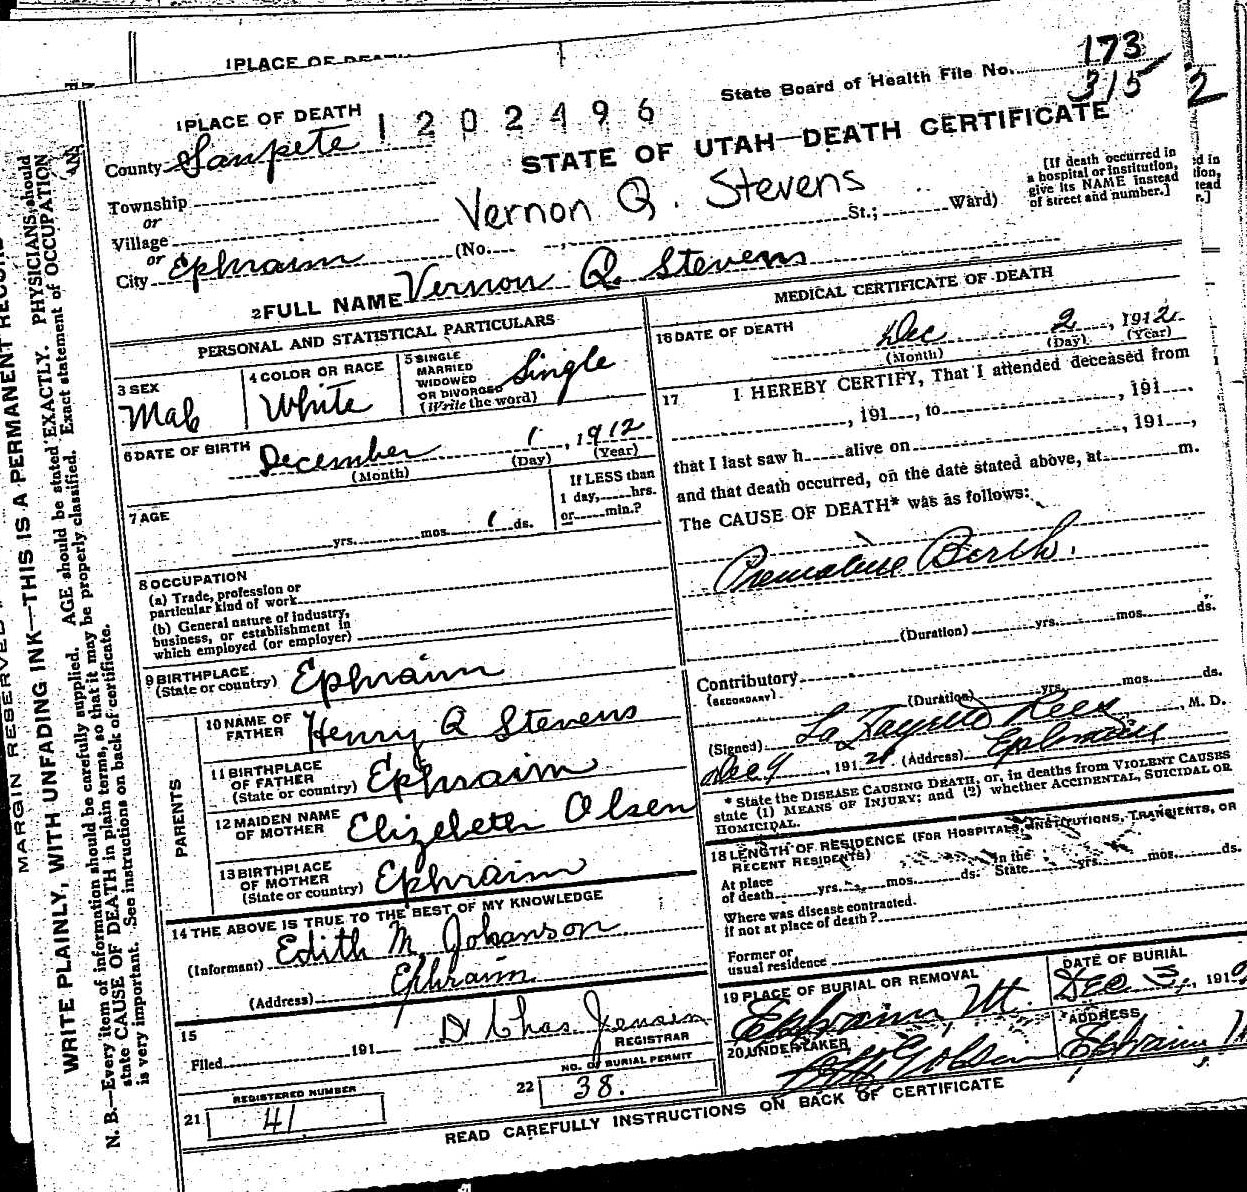 1 PLACE OF DEATH
State Board of Health File No. 173
315 2
1 PLACE OF DEATH
1202496
County Sanpete
STATE OF UTAH—DEATH CERTIFICATE
Township
or
Village
or
City Ephraim
Vernon Q. Stevens
(No. St.; Ward)
[If death occurred in
a hospital or institution,
give its NAME instead
of street and number.]
2 FULL NAME Vernon Q Stevens
PERSONAL AND STATISTICAL PARTICULARS
3 SEX
Male
4 COLOR OR RACE
White
5 SINGLE
MARRIED
WIDOWED
OR DIVORCED
(Write the word)
Single
6 DATE OF BIRTH
December 1, 1912
(Month) (Day) (Year)
7 AGE
yrs. mos. 1 ds.
If LESS than
1 day, hrs.
or min.?
8 OCCUPATION
(a) Trade, profession or
particular kind of work
(b) General nature of industry,
business, or establishment in
which employed (or employer)
9 BIRTHPLACE
(State or country) Ephraim
PARENTS
10 NAME OF
FATHER Henry Q Stevens
11 BIRTHPLACE
OF FATHER
(State or country) Ephraim
12 MAIDEN NAME
OF MOTHER Elizebeth Olsen
13 BIRTHPLACE
OF MOTHER
(State or country) Ephraim
14 THE ABOVE IS TRUE TO THE BEST OF MY KNOWLEDGE
(Informant) Edith M Johanson
(Address) Ephraim
15
Filed 191
Dr Chas Jensen
REGISTRAR
21 REGISTERED NUMBER
41
22 NO. OF BURIAL PERMIT
38.
MEDICAL CERTIFICATE OF DEATH
16 DATE OF DEATH
Dec 2, 1912
(Month) (Day) (Year)
17 I HEREBY CERTIFY, That I attended deceased from
, 191 , to , 191
that I last saw h alive on , 191 ,
and that death occurred, on the date stated above, at m.
The CAUSE OF DEATH* was as follows:
Premature Berth.
(Duration) yrs. mos. ds.
Contributory
(SECONDARY)
(Duration) yrs. mos. ds.
(Signed) La Fayette Rees, M. D.
Dec 9, 191 (Address) Ephraim
* State the DISEASE CAUSING DEATH, or, in deaths from VIOLENT CAUSES
state (1) MEANS OF INJURY; and (2) whether ACCIDENTAL, SUICIDAL OR
HOMICIDAL.
18 LENGTH OF RESIDENCE (FOR HOSPITALS, INSTITUTIONS, TRANSIENTS, OR
RECENT RESIDENTS)
At place
of death yrs. mos. ds. In the
State yrs. mos. ds.
Where was disease contracted.
if not at place of death?
Former or
usual residence
19 PLACE OF BURIAL OR REMOVAL
Ephraim, Ut.
DATE OF BURIAL
Dec 3, 191
20 UNDERTAKER
ADDRESS
Ephraim
READ CAREFULLY INSTRUCTIONS ON BACK OF CERTIFICATE
MARGIN RESERVED
WRITE PLAINLY, WITH UNFADING INK—THIS IS A PERMANENT RECORD
N. B.—Every item of information should be carefully supplied. AGE should be stated EXACTLY. PHYSICIANS should
state CAUSE OF DEATH in plain terms, so that it may be properly classified. Exact statement of OCCUPATION
is very important. See instructions on back of certificate.